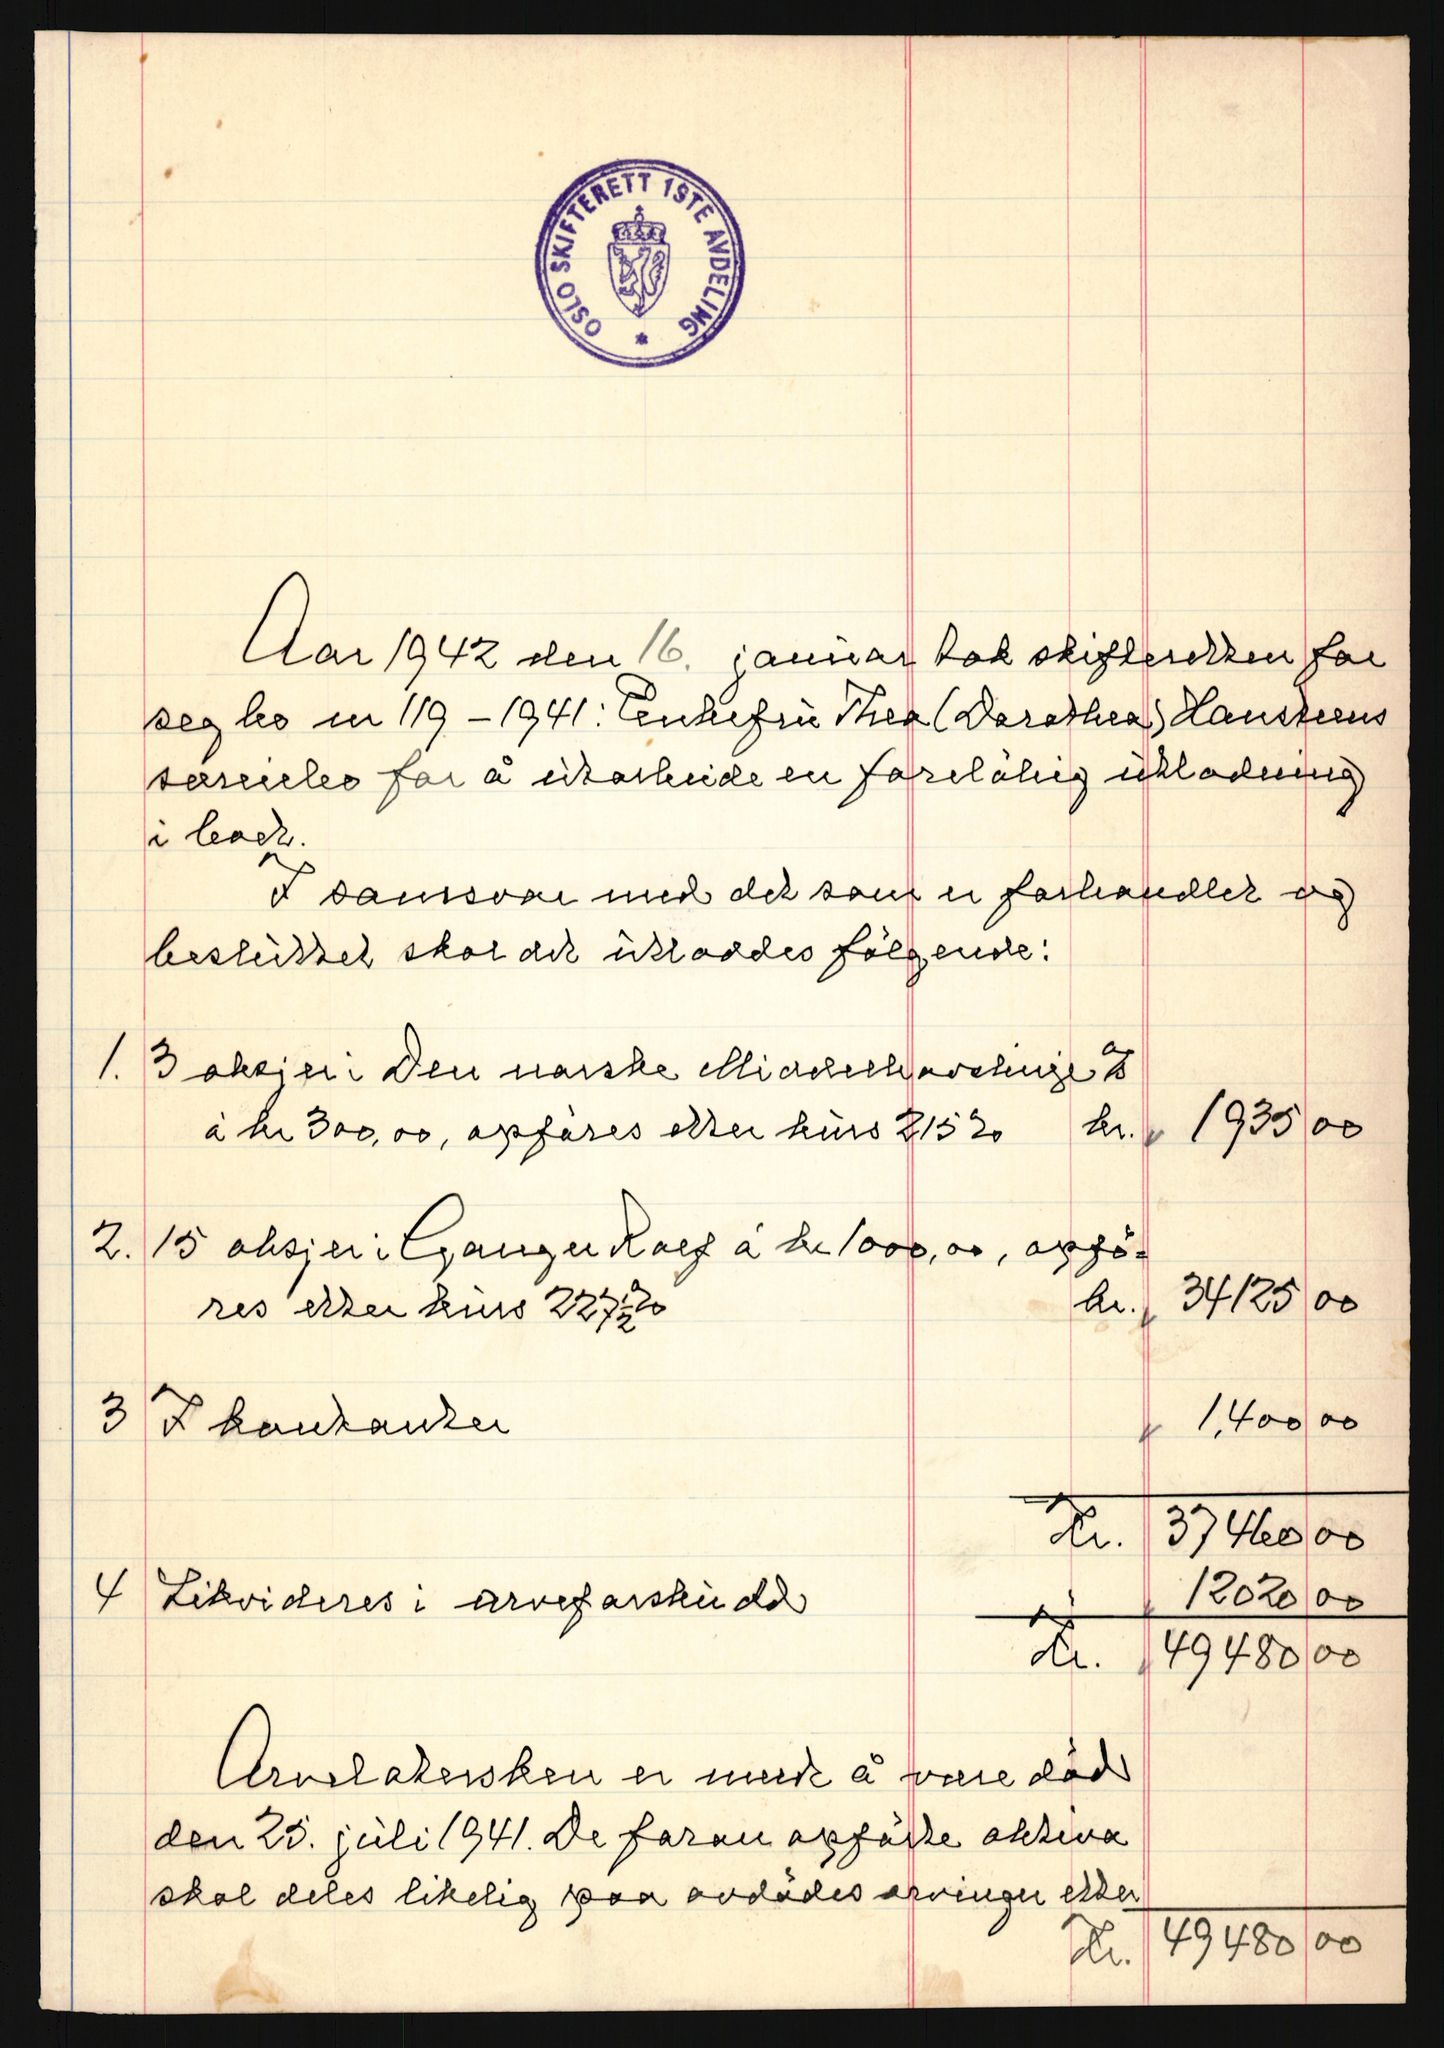 OSLO SKIFTERETT 1STE AVDELING *
Aar 1942 den 16. januar tok skifteretten for
seg bo nr 119 – 1941: Enkefru Thea (Dorothea) Hansteens
særeiebo for å utarbeide en foreløbig utlodning
i boet.
I samsvar med det som er forhandlet og
besluttet skal det utloddes følgende:
1. 3 aksjer i Den norske Middelhavslinje A/S
à kr 300,00, opføres etter kurs 215 % kr. 1935 00
2. 15 aksjer i Ganger Rolf à kr 1000,00, opfø-
res etter kurs 227 1/2 % kr. 34125 00
3 I kontanter 1,400 00
Kr. 37460 00
4 Likvideres i arveforskudd 12020 00
Kr. 49480 00
Arvelatersken er meldt å være død
den 25. juli 1941. De foran opførte aktiva
skal deles likelig paa avdødes arvinger etter
Kr. 49480 00